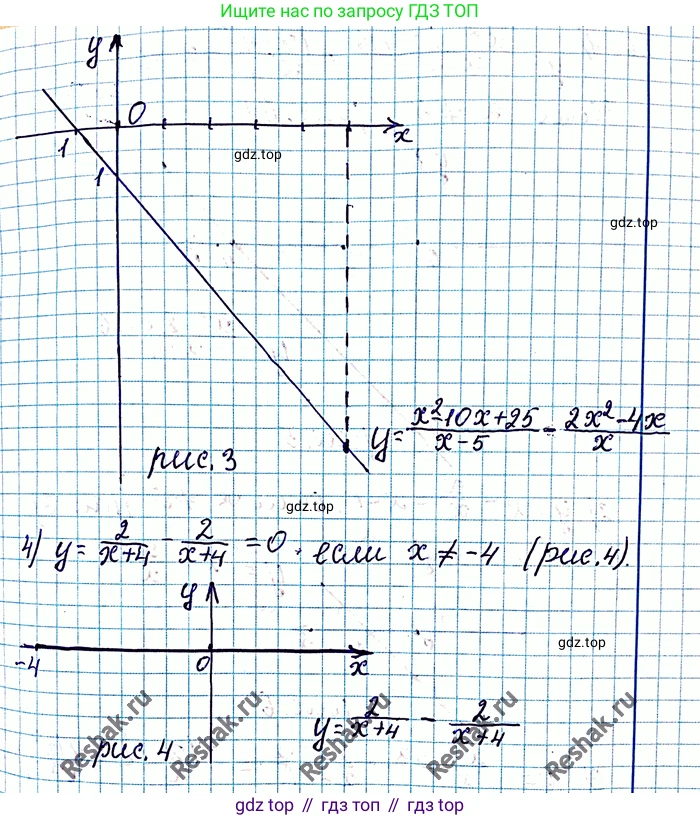 Ищите нас по запросу ГДЗ ТОП
y
0
x
1
gdz.top
1
gdz.top
y = (x²-10x+25)/(x-5) - (2x²-4x)/x
рис. 3
gdz.top
4) y = 2/(x+4) - 2/(x+4) = 0, если x ≠ -4 (рис. 4).
y
gdz.top
-4
0
x
y = 2/(x+4) - 2/(x+4)
рис. 4
Reshak.ru
Reshak.ru
Reshak.ru
Reshak.ru
Reshak.ru
gdz top // гдз топ // gdz top